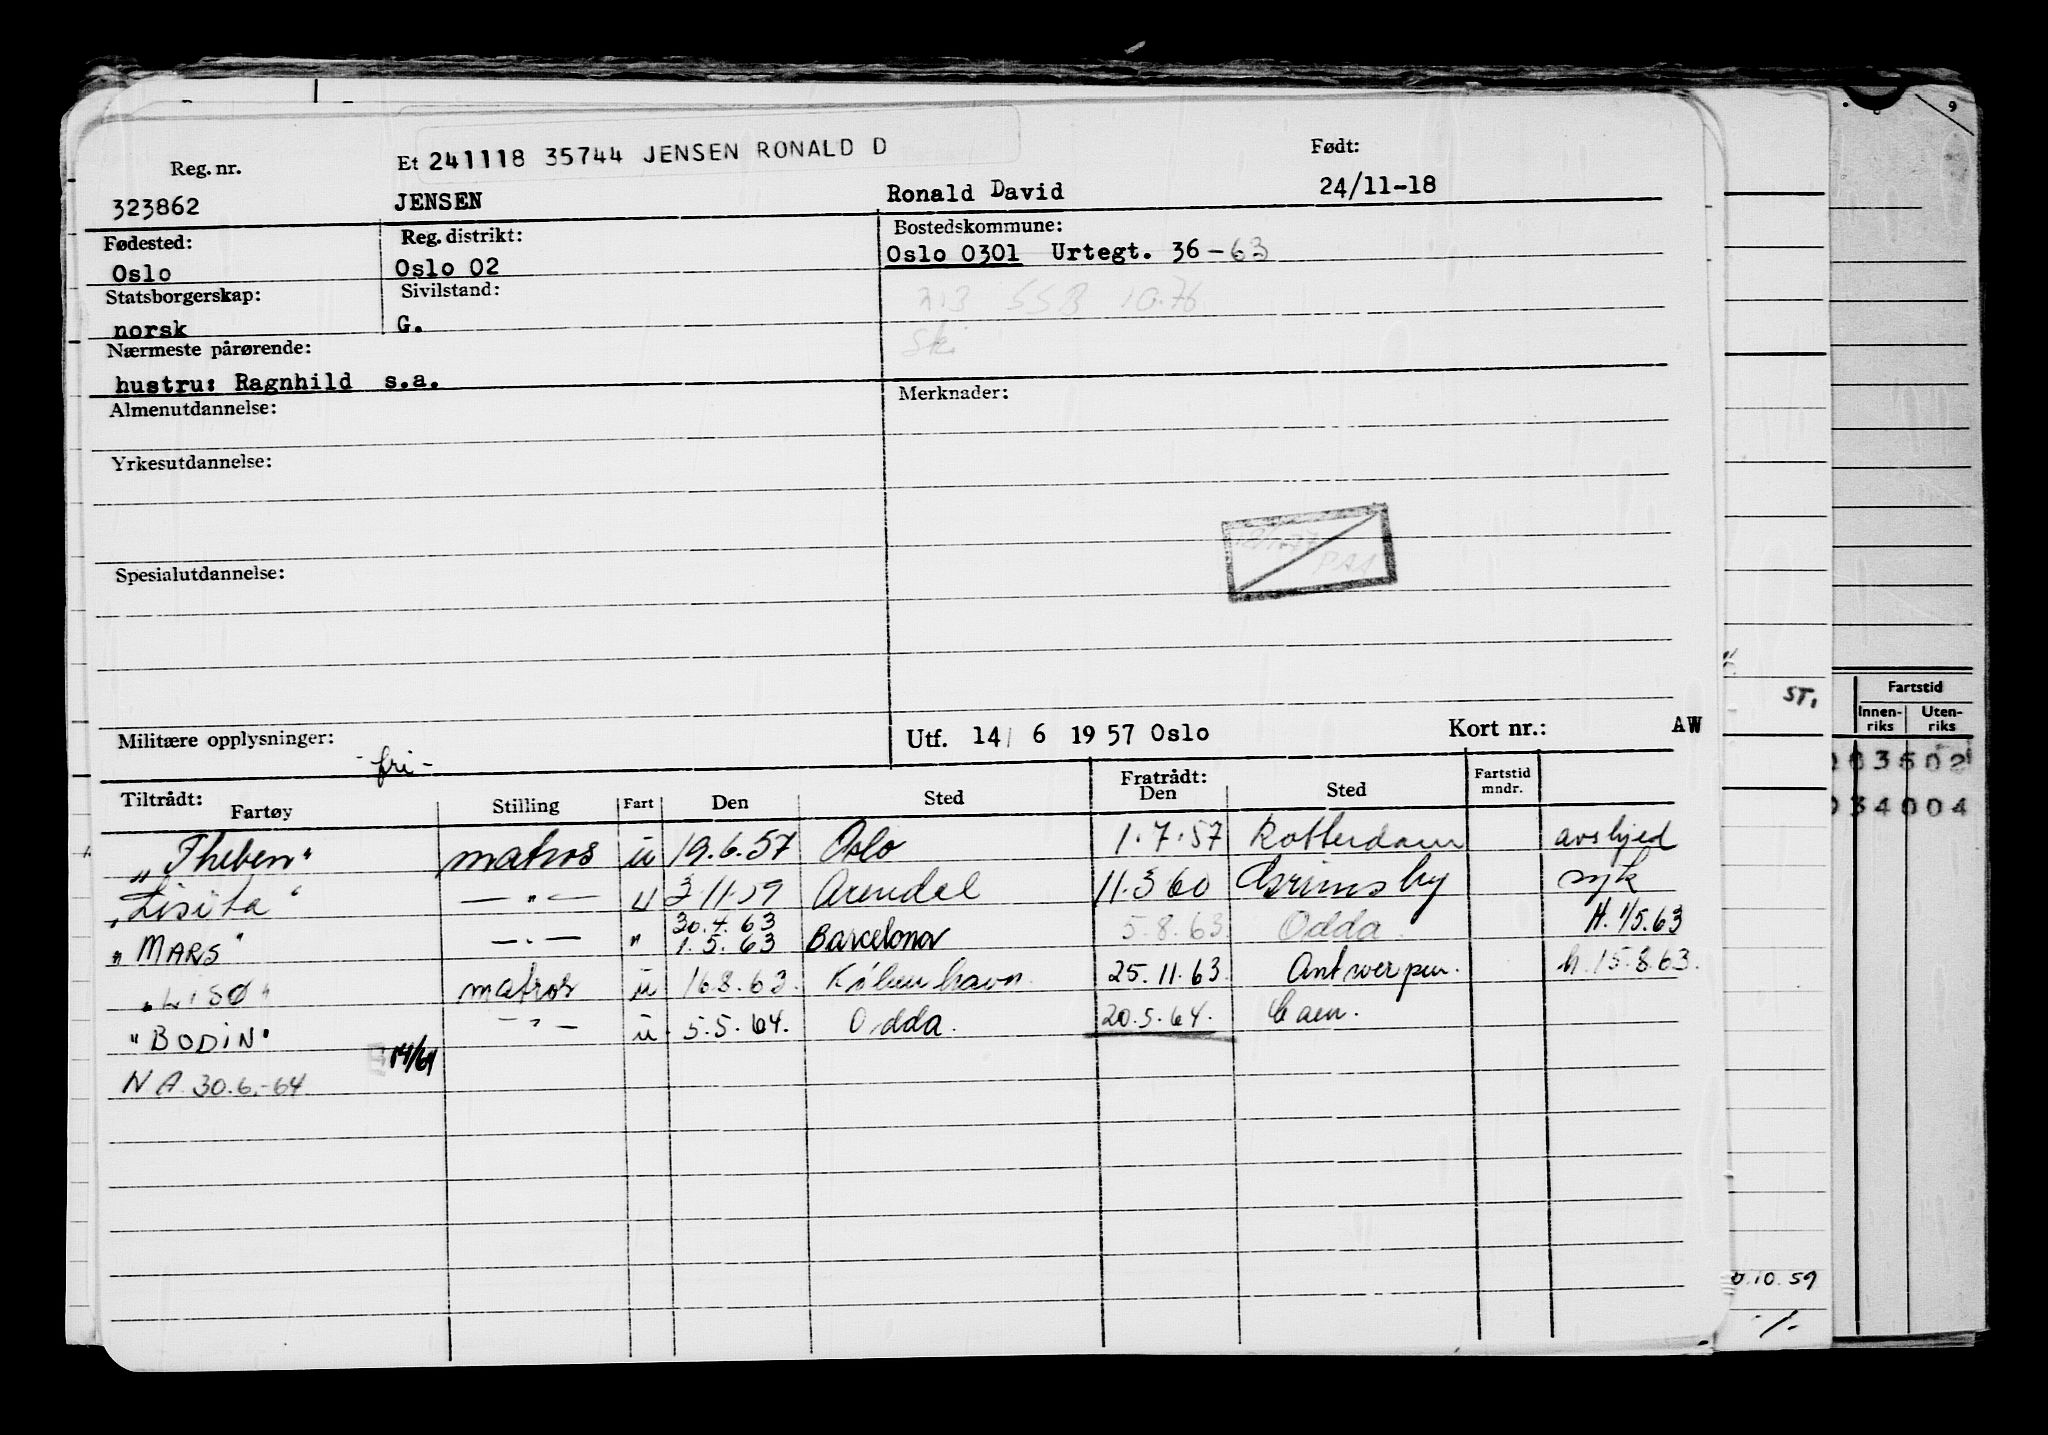 Reg. nr. Et 241118 35744 JENSEN RONALD D Født:
323862 JENSEN Ronald David 24/11-18
Fødested: Reg. distrikt: Bostedskommune:
Oslo Oslo 02 Oslo 0301 Urtegt. 36 -63
Statsborgerskap: Sivilstand: 213 SSB 10.76
norsk G. Ski
Nærmeste pårørende:
hustru: Ragnhild s.a.
Almenutdannelse: Merknader:
Yrkesutdannelse:
Spesialutdannelse:
Militære opplysninger: -fri- Utf. 14/ 6 1957 Oslo Kort nr.: AW
Tiltrådt: Fartøy Stilling Fart Den Sted Fratrådt: Den Sted Fartstid mndr.
"Theben" matros u 19.6.57 Oslo 1.7.57 Rotterdam avskjed
"Lisita" —"— u 3.11.59 Arendal 11.3 60 Grimsby syk
30.4.63
"MARS" —"— " 1.5.63 Barcelona 5.8.63 Odda H. 1/5.63
"LISØ" matros u 16.8.63. København 25.11.63 Antwerpen. h. 15.8.63.
"BODIN" —"— u. 5.5.64. Odda. 20.5.64. Caen.
N A. 30.6.-64
ST.
Fartstid
Innenriks Utenriks
0.10.59
-/-
9